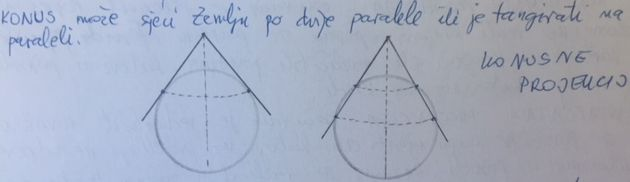 KONUS može sjeći Zemlju po dvije paralele ili je tangirati na
paraleli.
KONUSNE
PROJEKCIJ